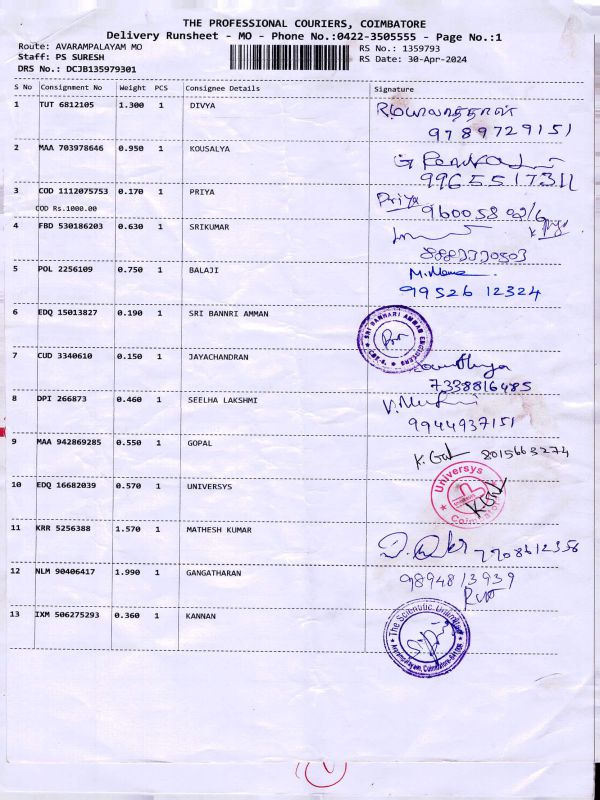 THE PROFESSIONAL COURIERS, COIMBATORE
Delivery Runsheet - MO - Phone No.:0422-3505555 - Page No.:1
Route: AVARAMPALAYAM MO
RS No.: 1359793
Staff: PS SURESH
RS Date: 30-Apr-2024
DRS No.: DCJB135979301
S No Consignment No Weight PCS Consignee Details Signature
1 TUT 6812105 1.300 1 DIVYA
9789729151
2 MAA 703978646 0.950 1 KOUSALYA
9965517311
3 COD 1112075753 0.170 1 PRIYA Priya
COD Rs.1000.00
4 FBD 530186203 0.630 1 SRIKUMAR
5 POL 2256109 0.750 1 BALAJI
99526 12324
6 EDQ 15013827 0.190 1 SRI BANNRI AMMAN
SRI BANNARI AMMAN
7 CUD 3340610 0.150 1 JAYACHANDRAN
7338816485
8 DPI 266873 0.460 1 SEELHA LAKSHMI
9944937151
9 MAA 942869285 0.550 1 GOPAL
8015663274
10 EDQ 16682039 0.570 1 UNIVERSYS
Universys
11 KRR 5256388 1.570 1 MATHESH KUMAR
7708612358
12 NLM 90406417 1.990 1 GANGATHARAN
9894813939
13 IXM 506275293 0.360 1 KANNAN
The Scientific